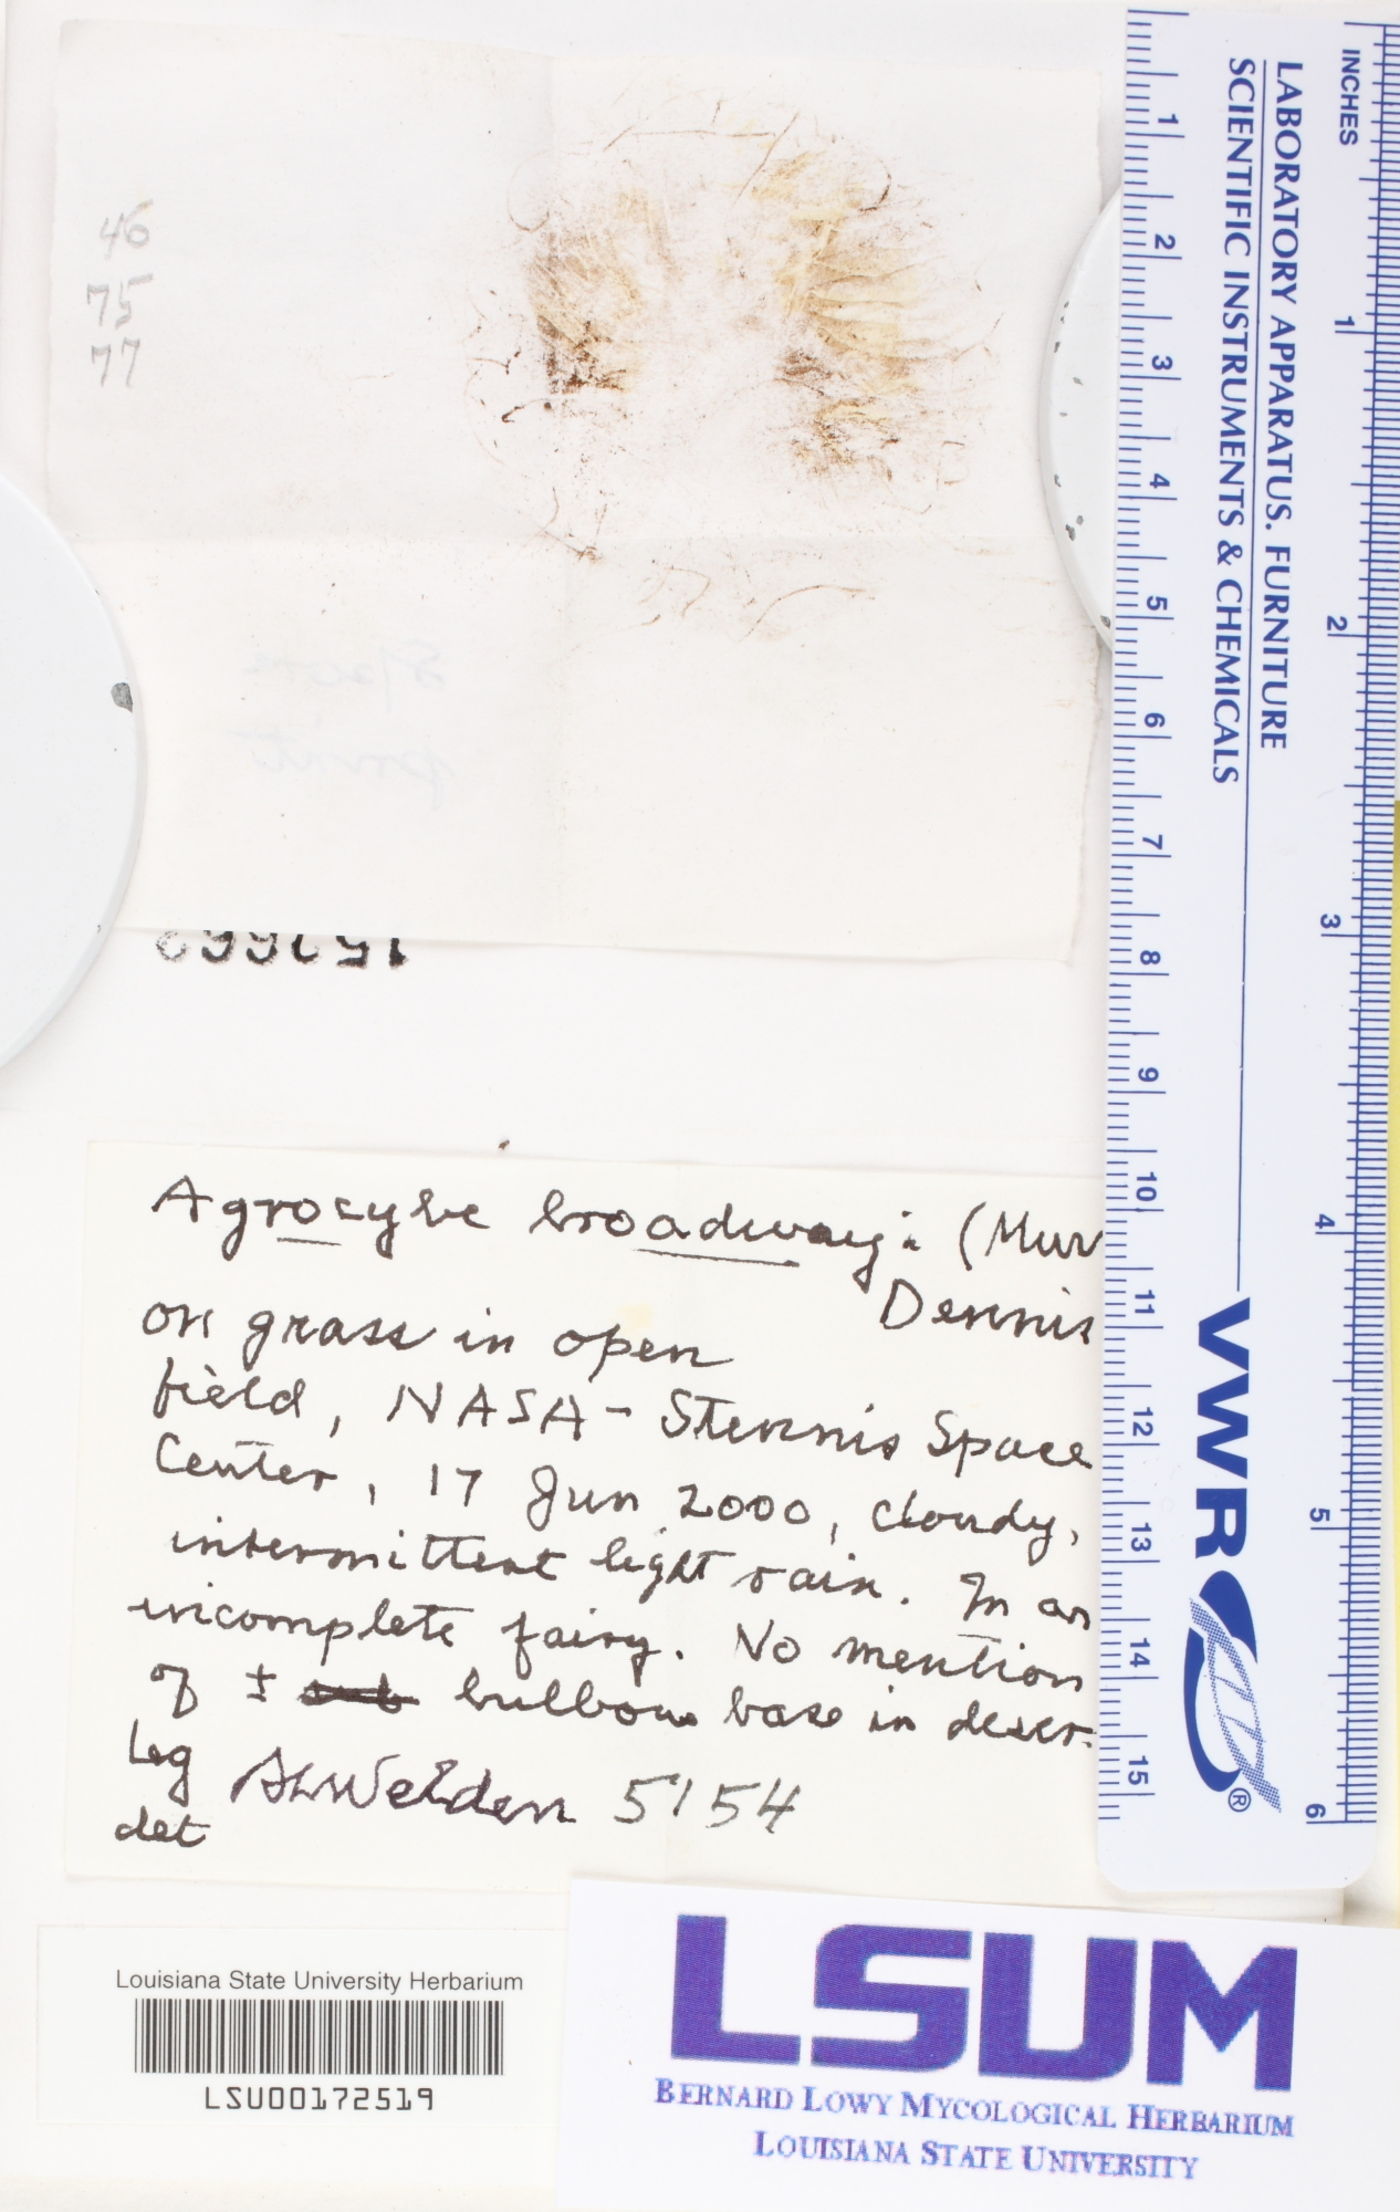 46
75
77
Agrocybe broadwayi (Murr
Dennis
on grass in open
field, NASA - Stennis Space
Center, 17 Jun 2000, cloudy,
intermittent light rain. In an
incomplete fairy. No mention
of ± bulbous base in descr.
Leg ALWelden 5154
det
Louisiana State University Herbarium
LSU00172519
LSUM
BERNARD LOWY MYCOLOGICAL HERBARIUM
LOUISIANA STATE UNIVERSITY
INCHES
LABORATORY APPARATUS. FURNITURE
SCIENTIFIC INSTRUMENTS & CHEMICALS
VWR®
1 2 3 4 5 6 7 8 9 10 11 12 13 14 15
1 2 3 4 5 6